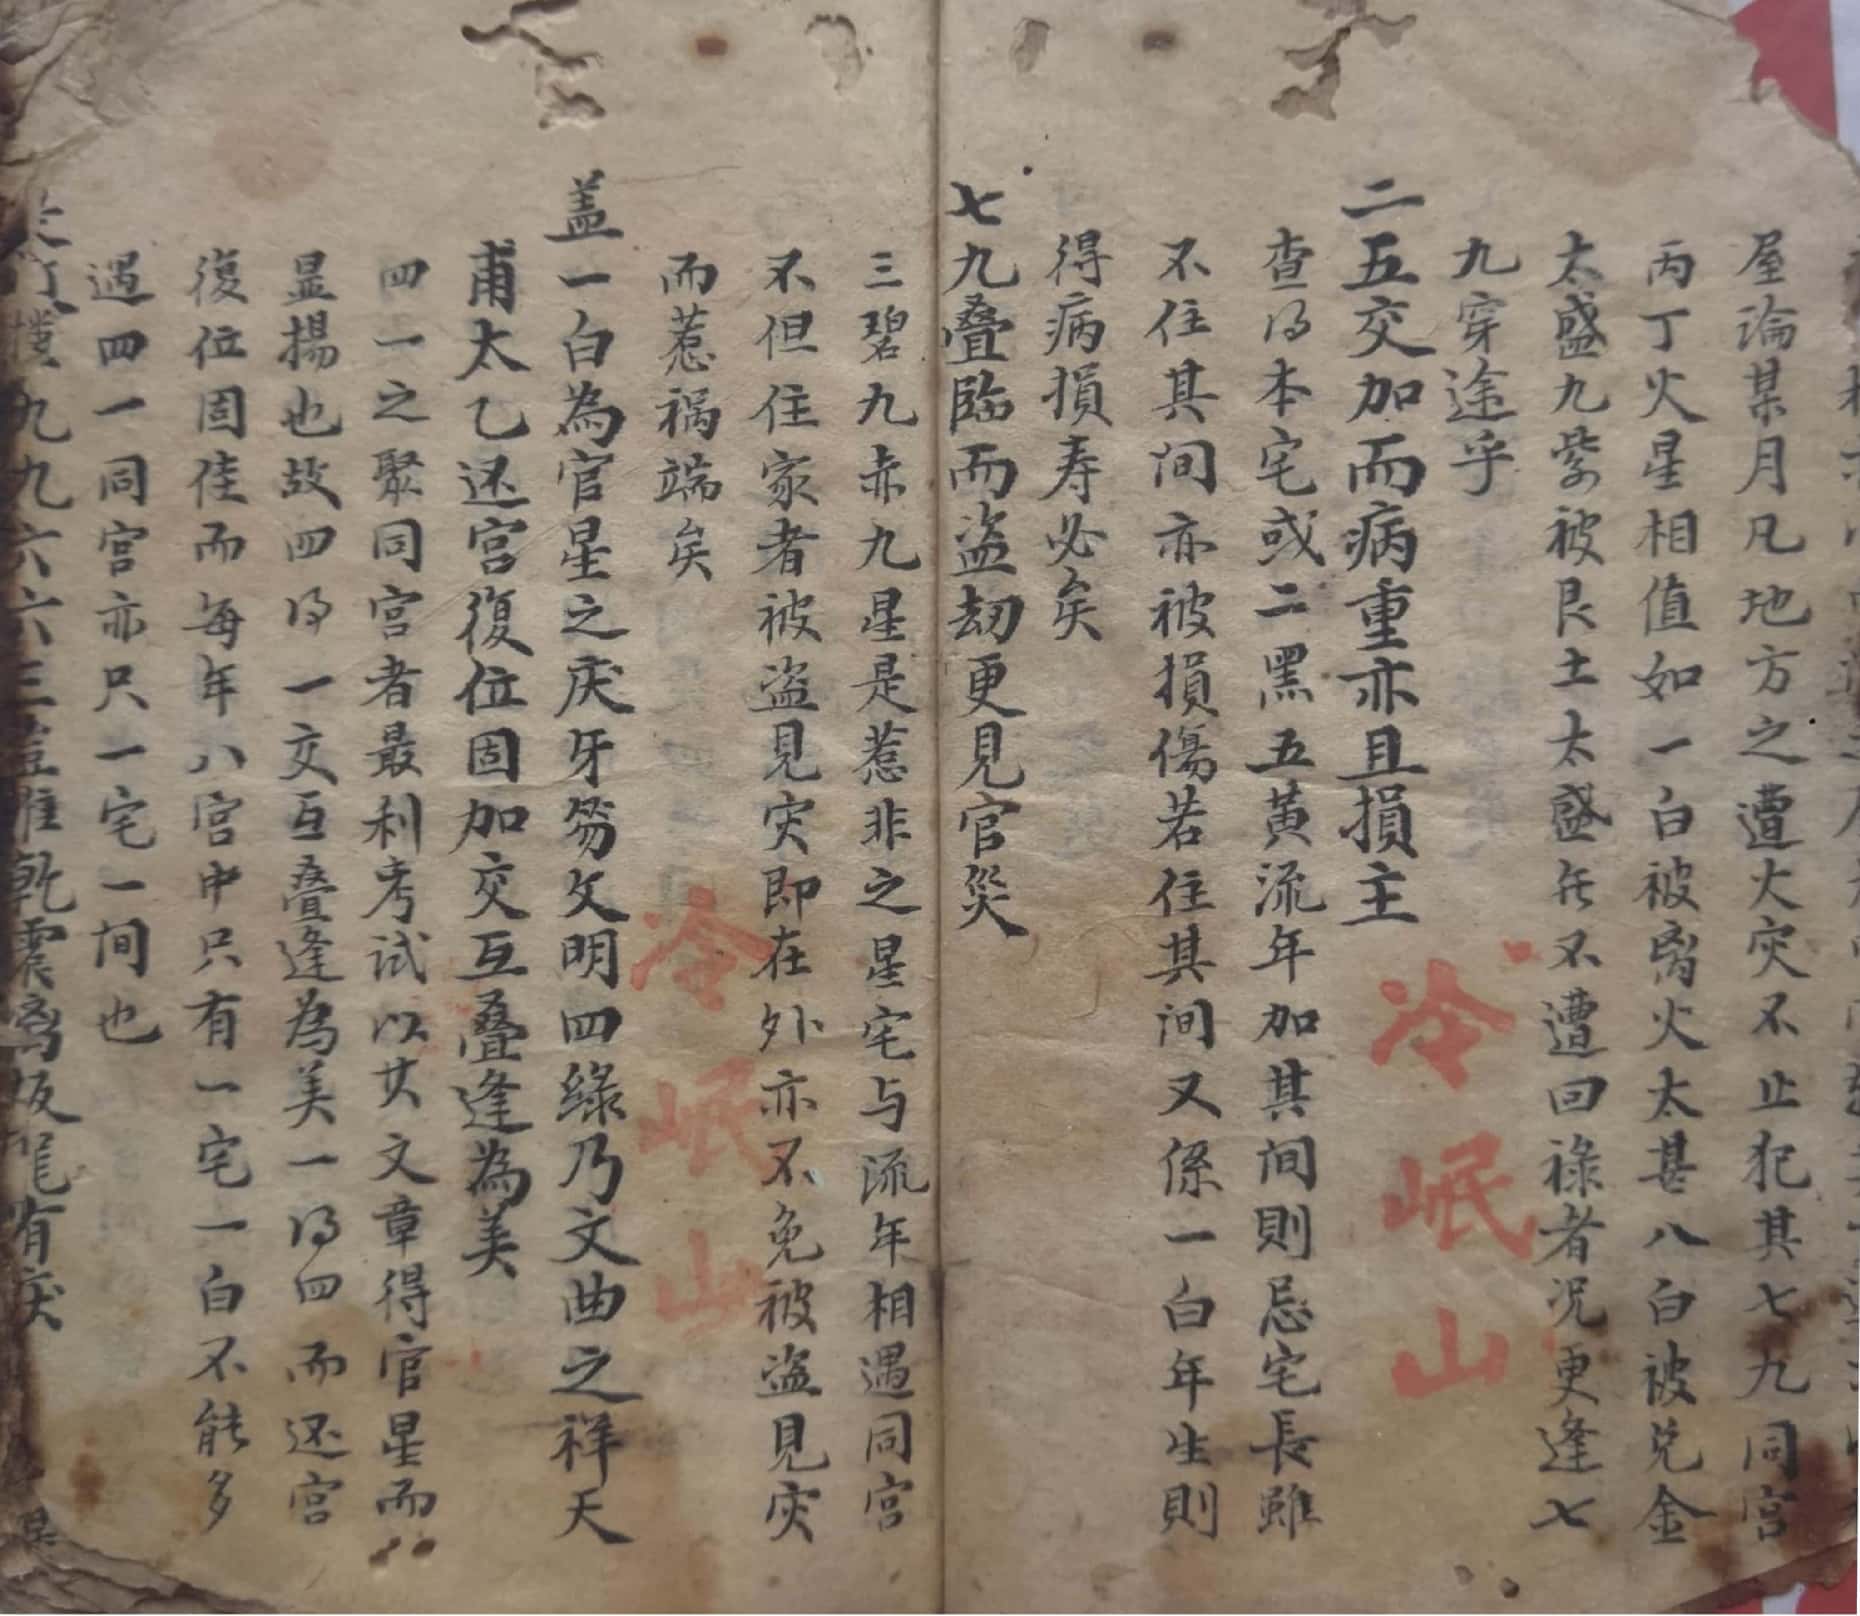 屋論某月凡地方之遭火灾不止犯其七九同宫
丙丁火星相值如一白被离火太甚八白被兑金
太盛九紫被艮土太盛無不遭回祿者况更逢七
九穿途乎
二五交加而病重亦且損主
查得本宅或二黑五黃流年加其间則忌宅長雖
不住其间亦被損傷若住其间又係一白年生則
得病損寿必矣
七九叠临而盗劫更見官災
三碧九赤九星是惹非之星宅与流年相遇同宫
不但住家者被盗見灾即在外亦不免被盗見灾
而惹禍端矣
盖一白為官星之厌牙笏文明四綠乃文曲之祥天
甫太乙还宫復位固加交互叠逢為美
四一之聚同宫者最利考試以其文章得官星而
显揚也故四得一交互叠逢為美一得四而还宫
復位固佳而每年八宫中只有一宅一白不能多
遇四一同宫亦只一宅一间也
九九六六三 乾震离 有庆
冷岷山
冷岷山